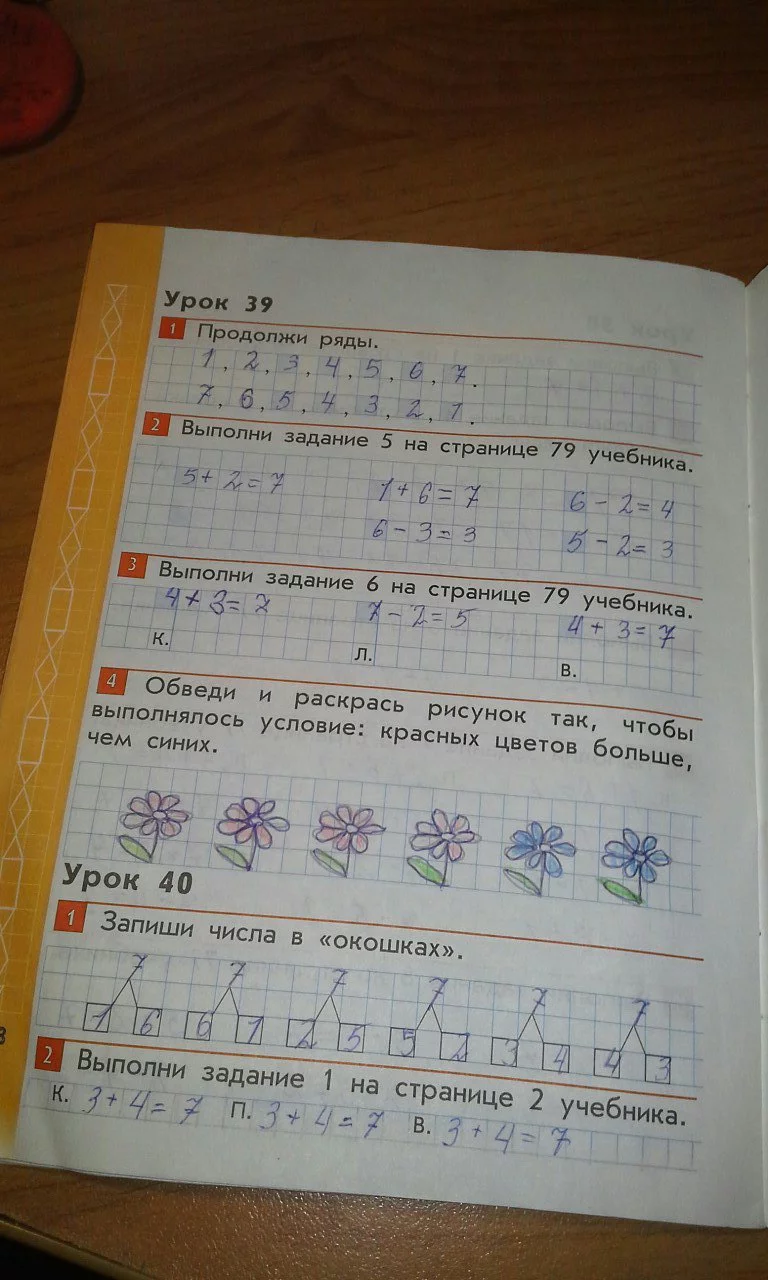 Урок 39
1 Продолжи ряды.
1, 2, 3, 4, 5, 6, 7.
7, 6, 5, 4, 3, 2, 1.
2 Выполни задание 5 на странице 79 учебника.
5+2=7 1+6=7 6-2=4
6-3=3 5-2=3
3 Выполни задание 6 на странице 79 учебника.
4+3=7 7-2=5 4+3=7
К. Л. В.
4 Обведи и раскрась рисунок так, чтобы
выполнялось условие: красных цветов больше,
чем синих.
Урок 40
1 Запиши числа в «окошках».
7 7 7 7 7 7
1 6 6 1 2 5 5 2 3 4 4 3
2 Выполни задание 1 на странице 2 учебника.
К. 3+4=7 П. 3+4=7 В. 3+4=7